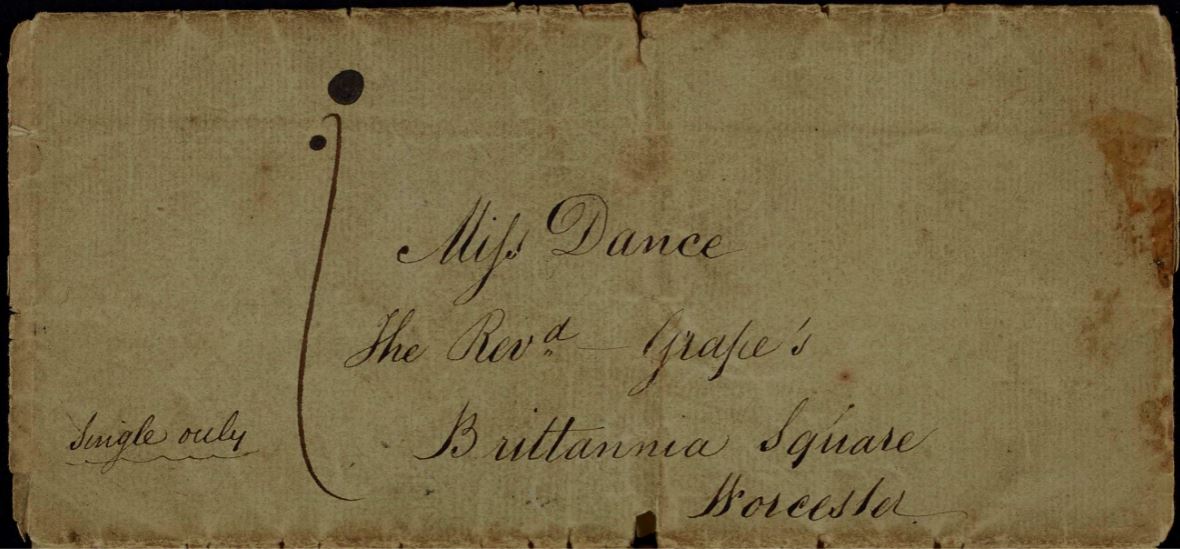 Miſs Dance
The Revᵈ — Grape's
single only
Brittannia Square
Worcester